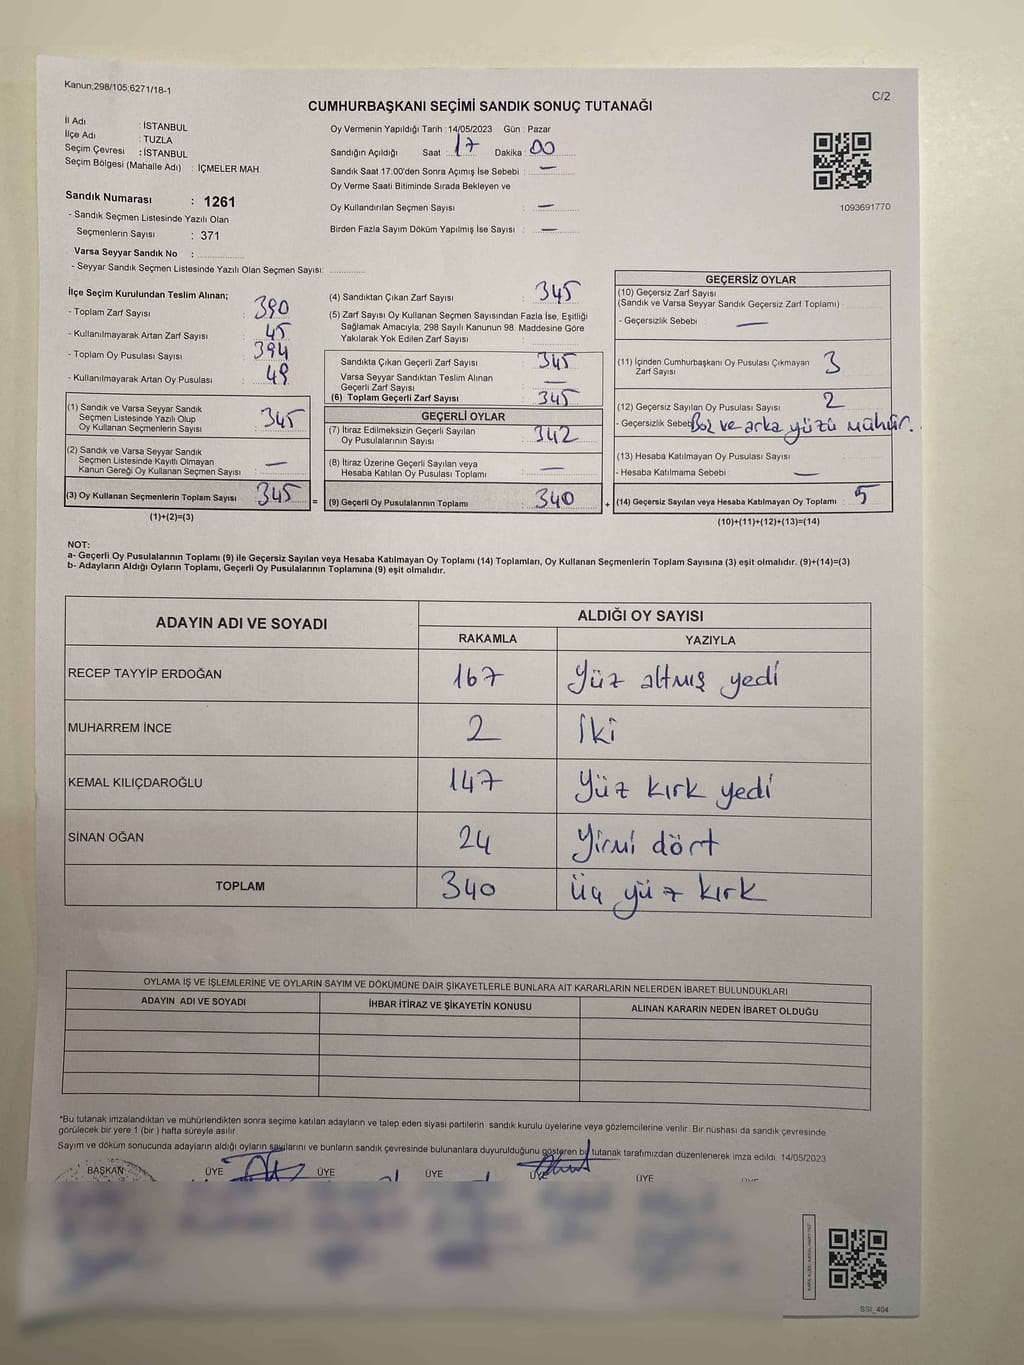 Kanun;298/105;6271/18-1
C/2
CUMHURBAŞKANI SEÇİMİ SANDIK SONUÇ TUTANAĞI
İl Adı : İSTANBUL
İlçe Adı : TUZLA
Seçim Çevresi : İSTANBUL
Seçim Bölgesi (Mahalle Adı) : İÇMELER MAH.
Sandık Numarası : 1261
- Sandık Seçmen Listesinde Yazılı Olan
Seçmenlerin Sayısı : 371
Varsa Seyyar Sandık No :
- Seyyar Sandık Seçmen Listesinde Yazılı Olan Seçmen Sayısı:
Oy Vermenin Yapıldığı Tarih : 14/05/2023 Gün : Pazar
Sandığın Açıldığı Saat : 17 Dakika : 00
Sandık Saat 17:00'den Sonra Açımış İse Sebebi : —
Oy Verme Saati Bitiminde Sırada Bekleyen ve
Oy Kullandırılan Seçmen Sayısı : —
Birden Fazla Sayım Döküm Yapılmış İse Sayısı : —
1093691770
İlçe Seçim Kurulundan Teslim Alınan;
- Toplam Zarf Sayısı : 390
- Kullanılmayarak Artan Zarf Sayısı : 45
- Toplam Oy Pusulası Sayısı : 394
- Kullanılmayarak Artan Oy Pusulası : 49
(1) Sandık ve Varsa Seyyar Sandık
Seçmen Listesinde Yazılı Olup
Oy Kullanan Seçmenlerin Sayısı : 345
(2) Sandık ve Varsa Seyyar Sandık
Seçmen Listesinde Kayıtlı Olmayan
Kanun Gereği Oy Kullanan Seçmen Sayısı : —
(3) Oy Kullanan Seçmenlerin Toplam Sayısı : 345
(1)+(2)=(3)
=
(4) Sandıktan Çıkan Zarf Sayısı : 345
(5) Zarf Sayısı Oy Kullanan Seçmen Sayısından Fazla İse, Eşitliği
Sağlamak Amacıyla; 298 Sayılı Kanunun 98. Maddesine Göre
Yakılarak Yok Edilen Zarf Sayısı :
Sandıkta Çıkan Geçerli Zarf Sayısı : 345
Varsa Seyyar Sandıktan Teslim Alınan
Geçerli Zarf Sayısı : —
(6) Toplam Geçerli Zarf Sayısı : 345
GEÇERLİ OYLAR
(7) İtiraz Edilmeksizin Geçerli Sayılan
Oy Pusulalarının Sayısı : 342
(8) İtiraz Üzerine Geçerli Sayılan veya
Hesaba Katılan Oy Pusulası Toplamı : —
(9) Geçerli Oy Pusulalarının Toplamı : 340
+
GEÇERSİZ OYLAR
(10) Geçersiz Zarf Sayısı
(Sandık ve Varsa Seyyar Sandık Geçersiz Zarf Toplamı) :
- Geçersizlik Sebebi : —
(11) İçinden Cumhurbaşkanı Oy Pusulası Çıkmayan
Zarf Sayısı : 3
(12) Geçersiz Sayılan Oy Pusulası Sayısı : 2
- Geçersizlik Sebebi Boş ve arka yüzü mühür.
(13) Hesaba Katılmayan Oy Pusulası Sayısı :
- Hesaba Katılmama Sebebi : —
(14) Geçersiz Sayılan veya Hesaba Katılmayan Oy Toplamı : 5
(10)+(11)+(12)+(13)=(14)
NOT:
a- Geçerli Oy Pusulalarının Toplamı (9) ile Geçersiz Sayılan veya Hesaba Katılmayan Oy Toplamı (14) Toplamları, Oy Kullanan Seçmenlerin Toplam Sayısına (3) eşit olmalıdır. (9)+(14)=(3)
b- Adayların Aldığı Oyların Toplamı, Geçerli Oy Pusulalarının Toplamına (9) eşit olmalıdır.
ADAYIN ADI VE SOYADI
ALDIĞI OY SAYISI
RAKAMLA YAZIYLA
RECEP TAYYİP ERDOĞAN 167 Yüz altmış yedi
MUHARREM İNCE 2 İki
KEMAL KILIÇDAROĞLU 147 Yüz kırk yedi
SİNAN OĞAN 24 Yirmi dört
TOPLAM 340 Üç yüz kırk
OYLAMA İŞ VE İŞLEMLERİNE VE OYLARIN SAYIM VE DÖKÜMÜNE DAİR ŞİKAYETLERLE BUNLARA AİT KARARLARIN NELERDEN İBARET BULUNDUKLARI
ADAYIN ADI VE SOYADI İHBAR İTİRAZ VE ŞİKAYETİN KONUSU ALINAN KARARIN NEDEN İBARET OLDUĞU
*Bu tutanak imzalandıktan ve mühürlendikten sonra seçime katılan adayların ve talep eden siyasi partilerin sandık kurulu üyelerine veya gözlemcilerine verilir. Bir nüshası da sandık çevresinde
görülecek bir yere 1 (bir ) hafta süreyle asılır.
Sayım ve döküm sonucunda adayların aldığı oyların sayılarını ve bunların sandık çevresinde bulunanlara duyurulduğunu gösteren bu tutanak tarafımızdan düzenlenerek imza edildi. 14/05/2023
BAŞKAN ÜYE ÜYE ÜYE ÜYE ÜYE
SSI_404